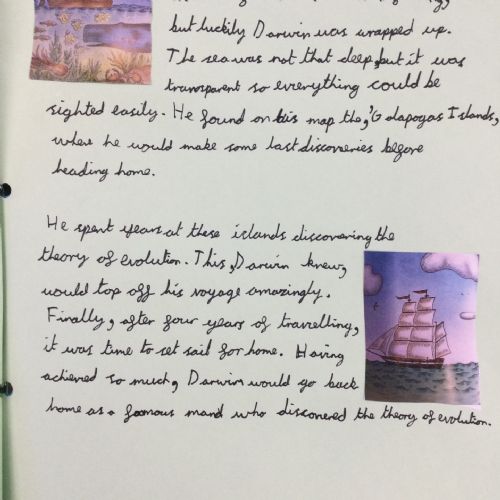 but luckily Darwin was wrapped up.
The sea was not that deep, but it was
transparent so everything could be
sighted easily. He found on his map the, 'Galapogas Islands,
where he would make some last discoveries before
heading home.
He spent years at these islands discovering the
theory of evolution. This, Darwin knew,
would top off his voyage amazingly.
Finally, after four years of travelling,
it was time to set sail for home. Having
achieved so much, Darwin would go back
home as a famous man who discovered the theory of evolution.